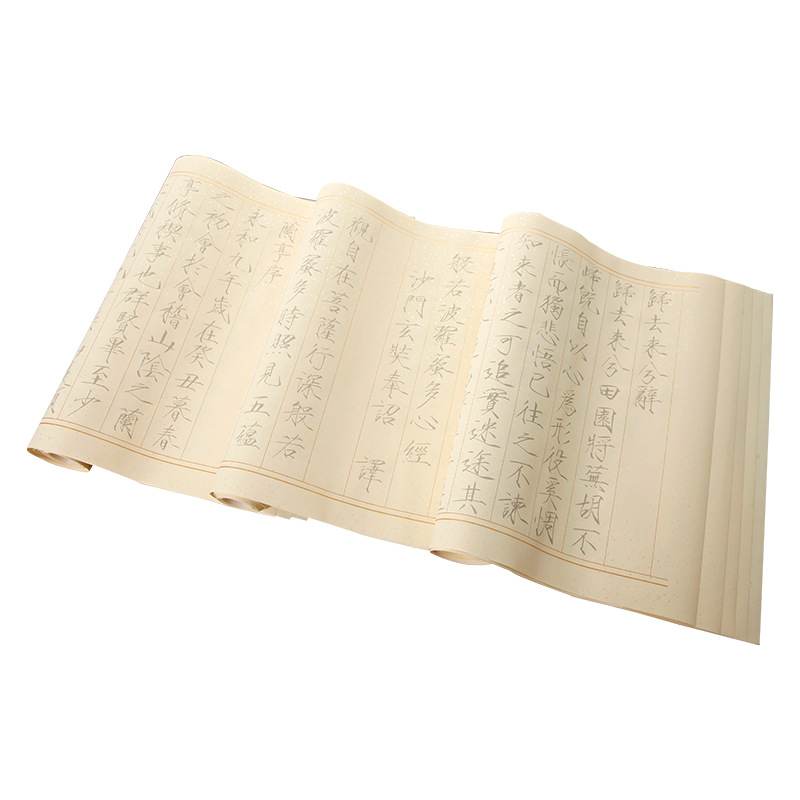 歸去來兮辭
歸去來兮田園將蕪胡不
歸既自以心爲形役奚惆
悵而獨悲悟已往之不諫
知来者之可追實迷途其
般若波羅蜜多心經
沙門玄奘奉詔 譯
觀自在菩薩行深般若
波羅蜜多時照見五蘊
蘭亭序
永和九年歲在癸丑暮春
之初會於會稽山陰之蘭
亭脩稧事也群賢畢至少